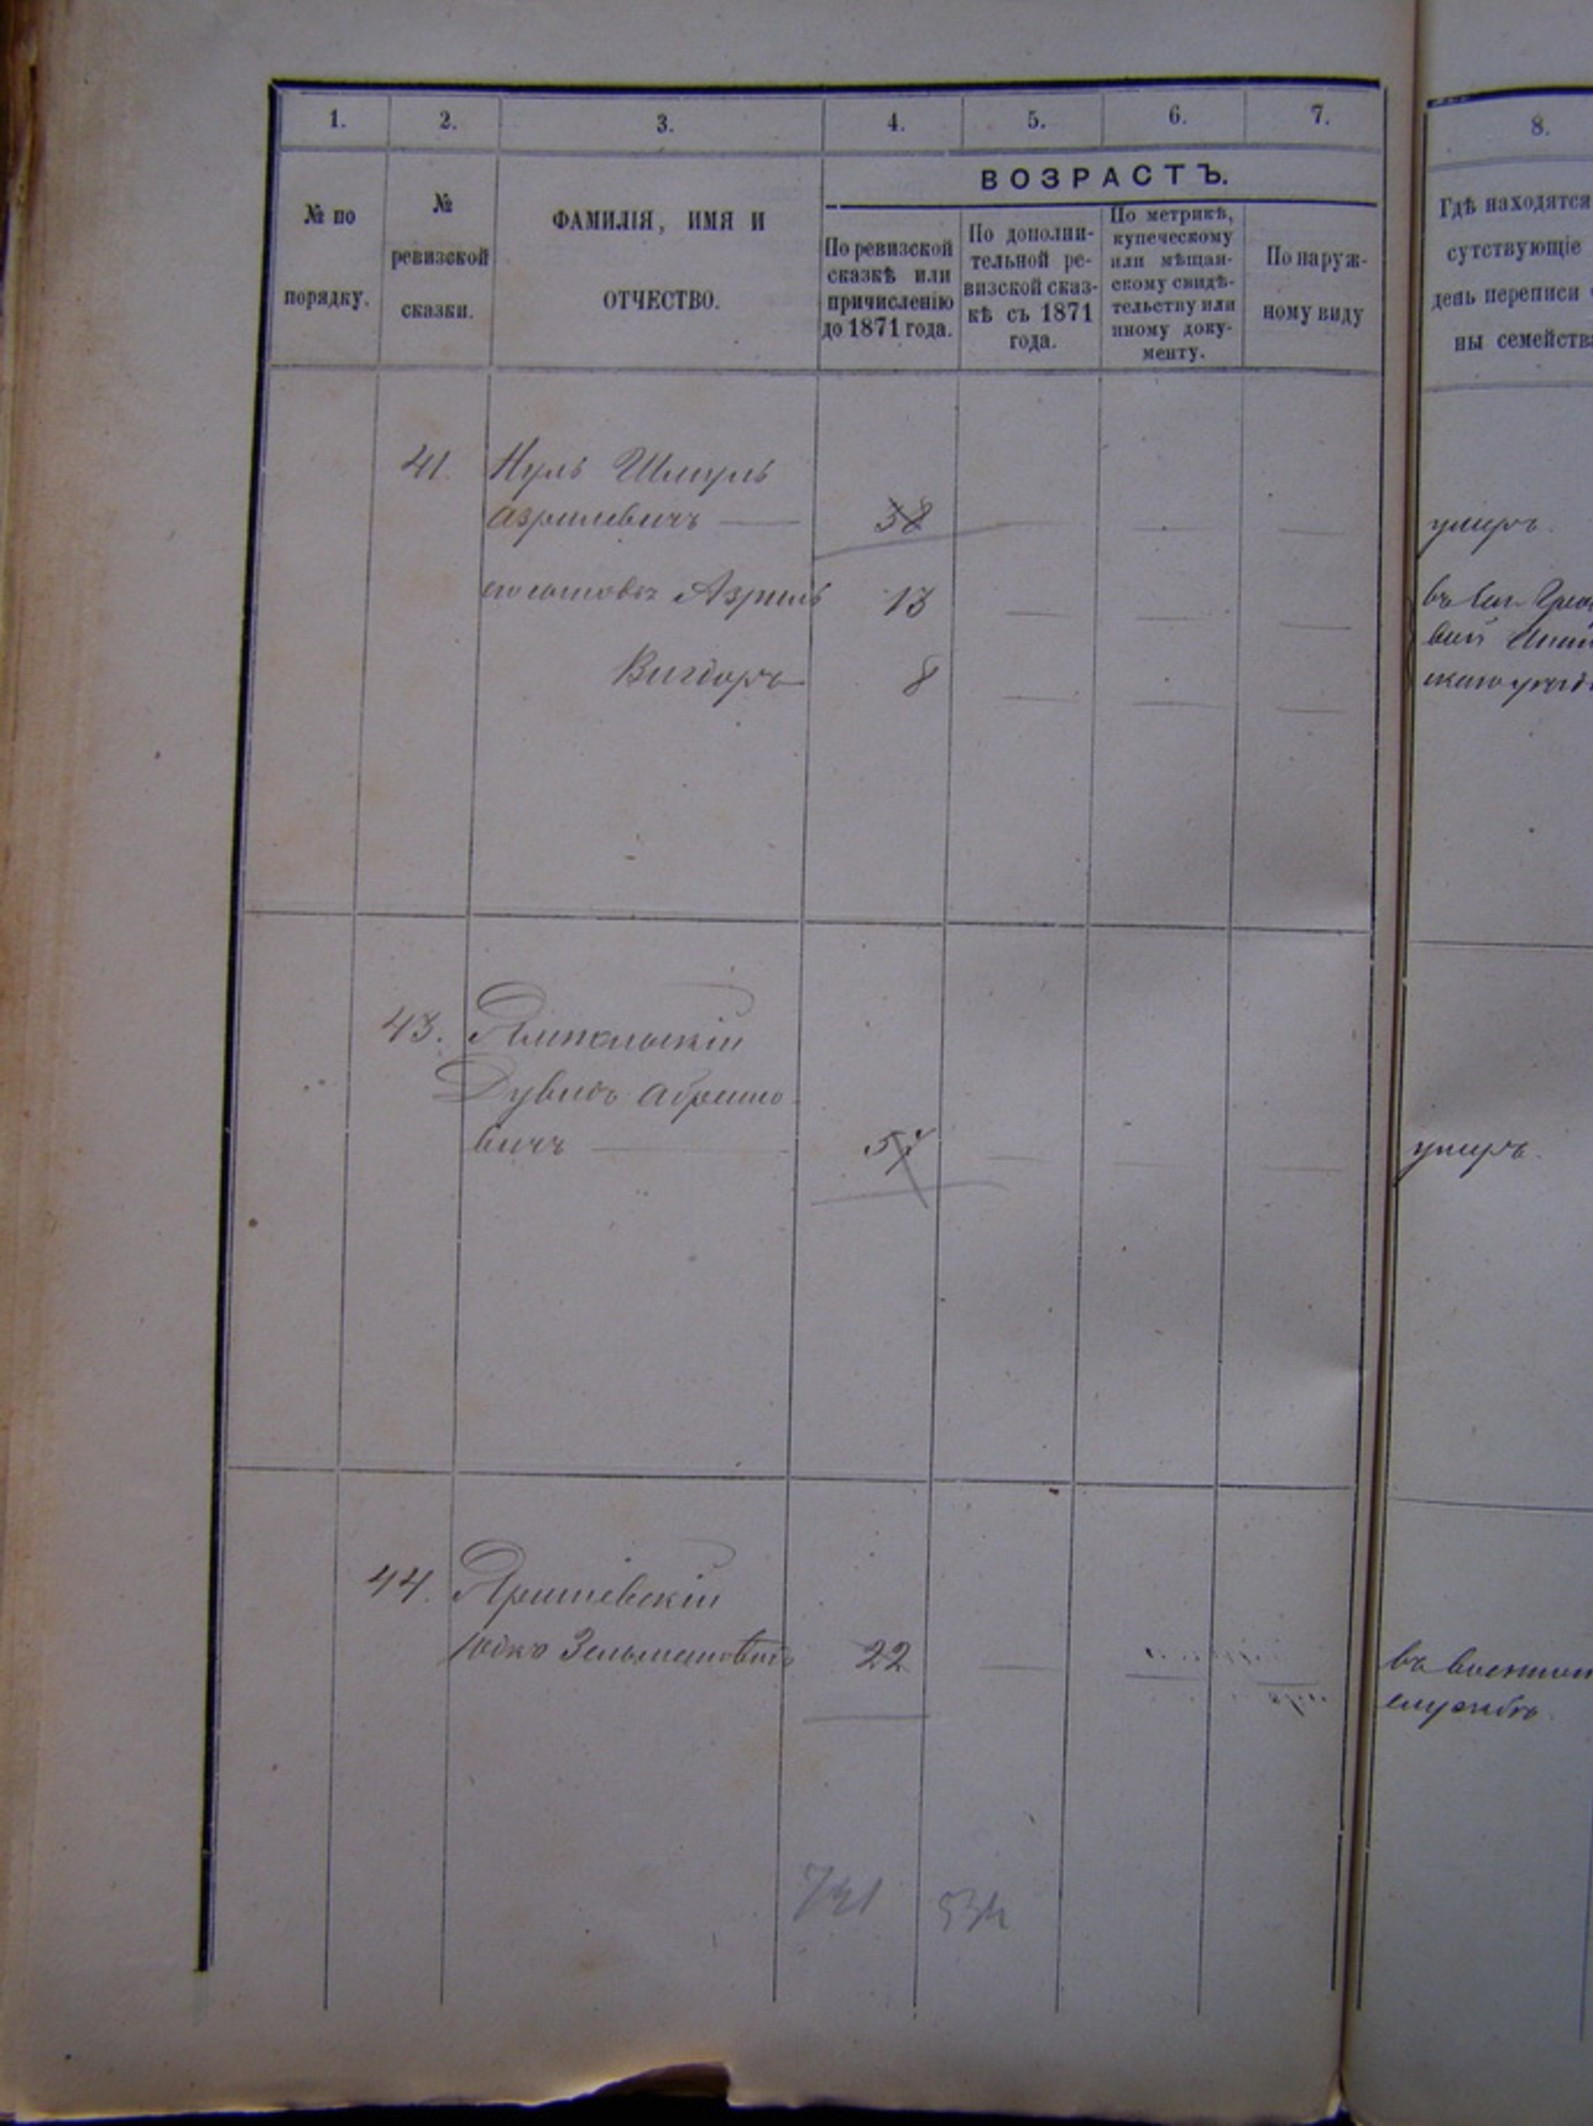 1. 2. 3. 4. 5. 6. 7. 8.
ВОЗРАСТЪ.
№ по
порядку.
№
ревизской
сказки.
ФАМИЛІЯ, ИМЯ И
ОТЧЕСТВО.
По ревизской
сказкѣ или
причисленію
до 1871 года.
По дополни-
тельной ре-
визской сказ-
кѣ съ 1871
года.
По метрикѣ,
купеческому
или мѣщан-
скому свидѣ-
тельству или
иному доку-
менту.
По наруж-
ному виду
Гдѣ находятся
сутствующіе
день переписи ч
ны семейства
41. Нуль Шмуль
Азрилевичъ — 38 — — — умеръ.
сыновья Азриль 13 — — — въ
Вигдоръ 8 — — —
43. Ямпольскій
Дувидъ Абрамо
вичъ — 57 — — — умеръ.
44. Яришевскій
Юдко Зельмановичъ 22 — — — въ военной
службѣ.
731 534